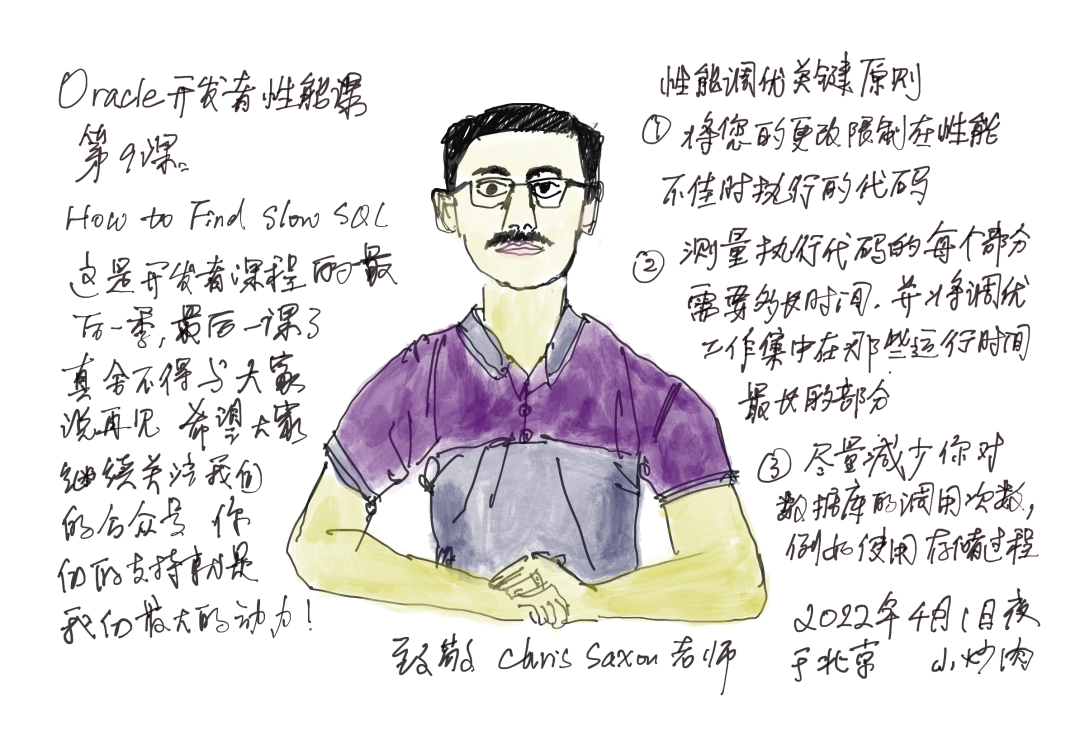 Oracle开发者性能课
第9课。
How to Find Slow SQL
这是开发者课程的最
后一季,最后一课了
真舍不得与大家
说再见 希望大家
继续关注我们
的公众号 你
们的支持就是
我们最大的动力!
性能调优关键原则
① 将您的更改限制在性能
不佳时执行的代码
② 测量执行代码的每个部分
需要多长时间.并将调优
工作集中在那些运行时间
最长的部分
③ 尽量减少你对
数据库的调用次数,
例如使用存储过程
2022年4月1日夜
于北京 小炒肉
致敬 Chris Saxon 老师